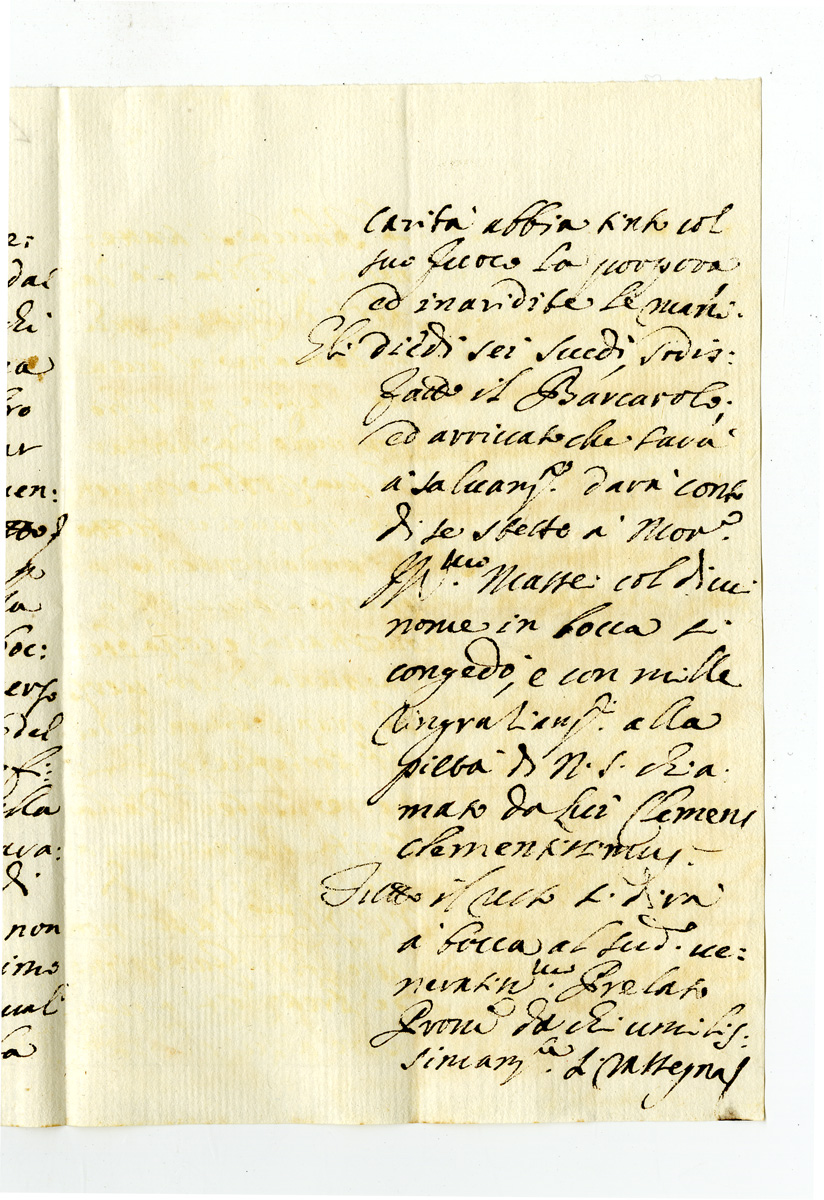 r:
dal
chi
na
bro
ur
uen:
tto
la
boc:
erso
del
illa
ava:
di
non
imo
ual
la
carità abbia tinto col
suo fuoco la porpora
ed inaridite le mani.
Gli diedi sei scudi, sodis:
fatto il Barcarolo;
ed arrivato che sarà
à saluam.to darà conto
di se stesso à Mon.r
Ill.mo Massei col di cui
nome in bocca si
congedò, e con mille
ringratiam.ti alla
pietà di N. S. chia
mato da lui Clemens
clementissimus.
Tutto il resto si dirà
à bocca al sud.o ue=
neratiss.mo Prelato
Pron.e da chi umilis:
simam.te si rassegna